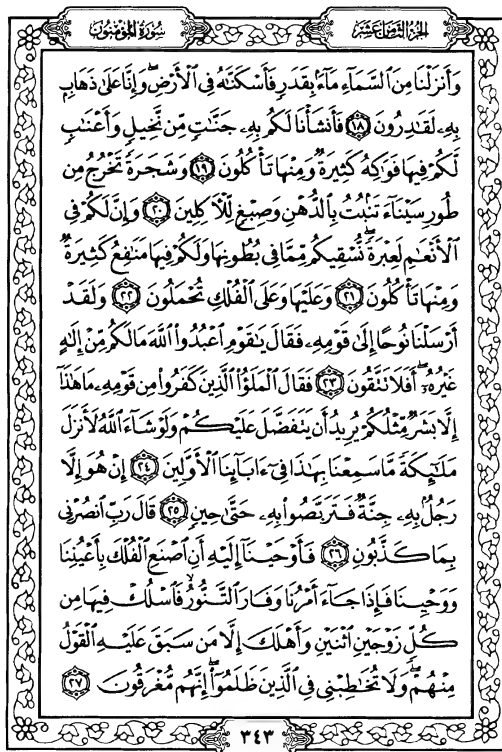 الجزء الثامن عشر
سورة المؤمنون
وَأَنزَلْنَا مِنَ ٱلسَّمَآءِ مَآءَۢ بِقَدَرٍ فَأَسْكَنَّـٰهُ فِى ٱلْأَرْضِ ۖ وَإِنَّا عَلَىٰ ذَهَابٍۭ
بِهِۦ لَقَـٰدِرُونَ ١٨ فَأَنشَأْنَا لَكُم بِهِۦ جَنَّـٰتٍ مِّن نَّخِيلٍ وَأَعْنَـٰبٍ
لَّكُمْ فِيهَا فَوَٰكِهُ كَثِيرَةٌ وَمِنْهَا تَأْكُلُونَ ١٩ وَشَجَرَةً تَخْرُجُ مِن
طُورِ سَيْنَآءَ تَنۢبُتُ بِٱلدُّهْنِ وَصِبْغٍ لِّلْـَٔاكِلِينَ ٢٠ وَإِنَّ لَكُمْ فِى
ٱلْأَنْعَـٰمِ لَعِبْرَةً ۖ نُّسْقِيكُم مِّمَّا فِى بُطُونِهَا وَلَكُمْ فِيهَا مَنَـٰفِعُ كَثِيرَةٌ
وَمِنْهَا تَأْكُلُونَ ٢١ وَعَلَيْهَا وَعَلَى ٱلْفُلْكِ تُحْمَلُونَ ٢٢ وَلَقَدْ
أَرْسَلْنَا نُوحًا إِلَىٰ قَوْمِهِۦ فَقَالَ يَـٰقَوْمِ ٱعْبُدُوا۟ ٱللَّهَ مَا لَكُم مِّنْ إِلَـٰهٍ
غَيْرُهُۥٓ ۖ أَفَلَا تَتَّقُونَ ٢٣ فَقَالَ ٱلْمَلَؤُا۟ ٱلَّذِينَ كَفَرُوا۟ مِن قَوْمِهِۦ مَا هَـٰذَآ
إِلَّا بَشَرٌ مِّثْلُكُمْ يُرِيدُ أَن يَتَفَضَّلَ عَلَيْكُمْ وَلَوْ شَآءَ ٱللَّهُ لَأَنزَلَ
مَلَـٰٓئِكَةً مَّا سَمِعْنَا بِهَـٰذَا فِىٓ ءَابَآئِنَا ٱلْأَوَّلِينَ ٢٤ إِنْ هُوَ إِلَّا
رَجُلٌۢ بِهِۦ جِنَّةٌ فَتَرَبَّصُوا۟ بِهِۦ حَتَّىٰ حِينٍ ٢٥ قَالَ رَبِّ ٱنصُرْنِى
بِمَا كَذَّبُونِ ٢٦ فَأَوْحَيْنَآ إِلَيْهِ أَنِ ٱصْنَعِ ٱلْفُلْكَ بِأَعْيُنِنَا
وَوَحْيِنَا فَإِذَا جَآءَ أَمْرُنَا وَفَارَ ٱلتَّنُّورُ ۙ فَٱسْلُكْ فِيهَا مِن
كُلٍّ زَوْجَيْنِ ٱثْنَيْنِ وَأَهْلَكَ إِلَّا مَن سَبَقَ عَلَيْهِ ٱلْقَوْلُ
مِنْهُمْ ۖ وَلَا تُخَـٰطِبْنِى فِى ٱلَّذِينَ ظَلَمُوٓا۟ ۖ إِنَّهُم مُّغْرَقُونَ ٢٧
٣٤٣